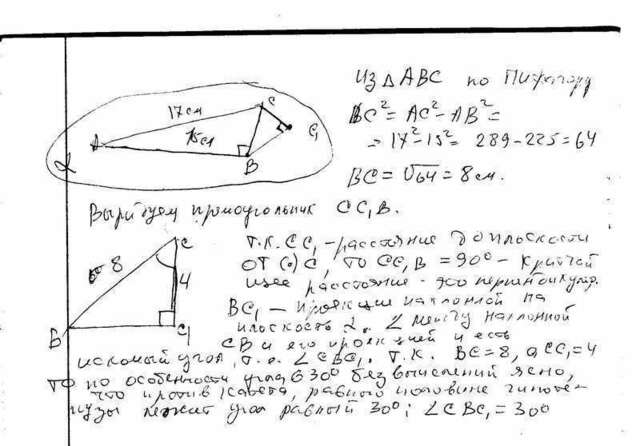 Из △ ABC по Пифагору
BC² = AC² - AB² =
= 17² - 15² = 289 - 225 = 64
BC = √64 = 8 см.
17 см
C
C₁
15 см
A
B
α
Вырисуем прямоугольник CC₁B.
Т.к. CC₁ - расстояние до плоскости
от (·) C, то CC₁B = 90° -
расстояние - это перпендикуляр.
BC₁ - проекция наклонной на
плоскость α. ∠ между наклонной
CB и его проекцией и есть
искомый угол, т.е. ∠CBC₁. Т.к. BC = 8, а CC₁ = 4
то по особенности угла в 30° без вычислений ясно,
что против катета, равного половине гипоте-
нузы лежит угол равный 30°; ∠CBC₁ = 30°
C
8
4
Б
C₁